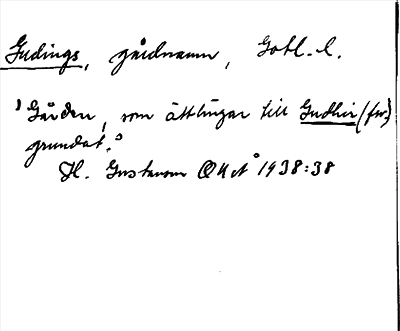 Gudings, gårdnamn, Gotl. l.
'Gården, som ättlingar till Gudhir (fsv.)
grundat.'
H. Gustavson 1938:38